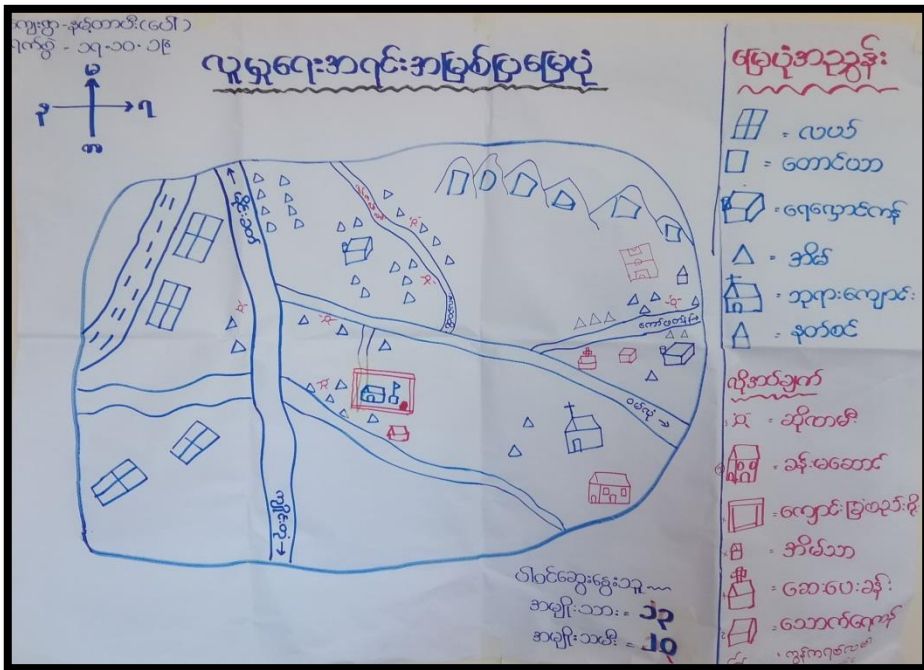 ကျေးရွာ-နမ့်တာပီး(ပေါ)
ရက်စွဲ - ၁၇-၁၀-၁၉
လူမှုရေးအရင်းအမြစ်ပြမြေပုံ
မြေပုံအညွှန်း
= လယ်
= တောင်ယာ
= ရေလှောင်ကန်
= အိမ်
= ဘုရားကျောင်း
= နတ်စင်
လိုအပ်ချက်
= ဆိုလာမီး
= ခန်းမဆောင်
= အိမ်သာ
= ဆေးပေးခန်း
= သောက်ရေကန်
မိုင်းခတ်
ကျိုင်းတုံ
ပါဝင်ဆွေးနွေးသူ
အမျိုးသား = ၁၃
အမျိုးသမီး = ၁၃